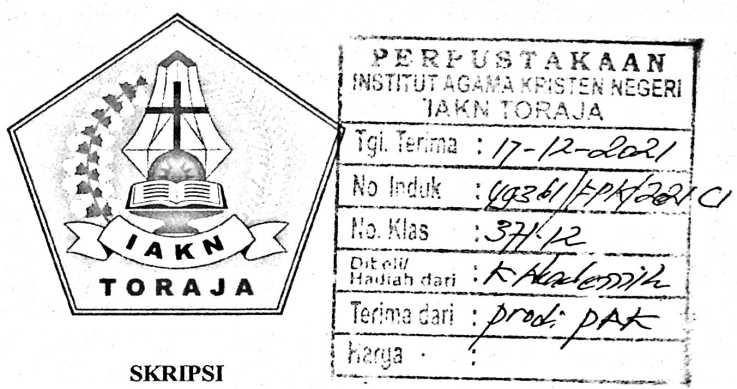 IAKN
TORAJA
SKRIPSI
PERPUSTAKAAN
INSTITUT AGAMA KRISTEN NEGERI
IAKN TORAJA
Tgl. Terima : 17-12-2021
No Induk :
No. Klas : 371.12
Dibeli/
Hadiah dari : K Akademik
Terima dari : prodi PAK
Harga :